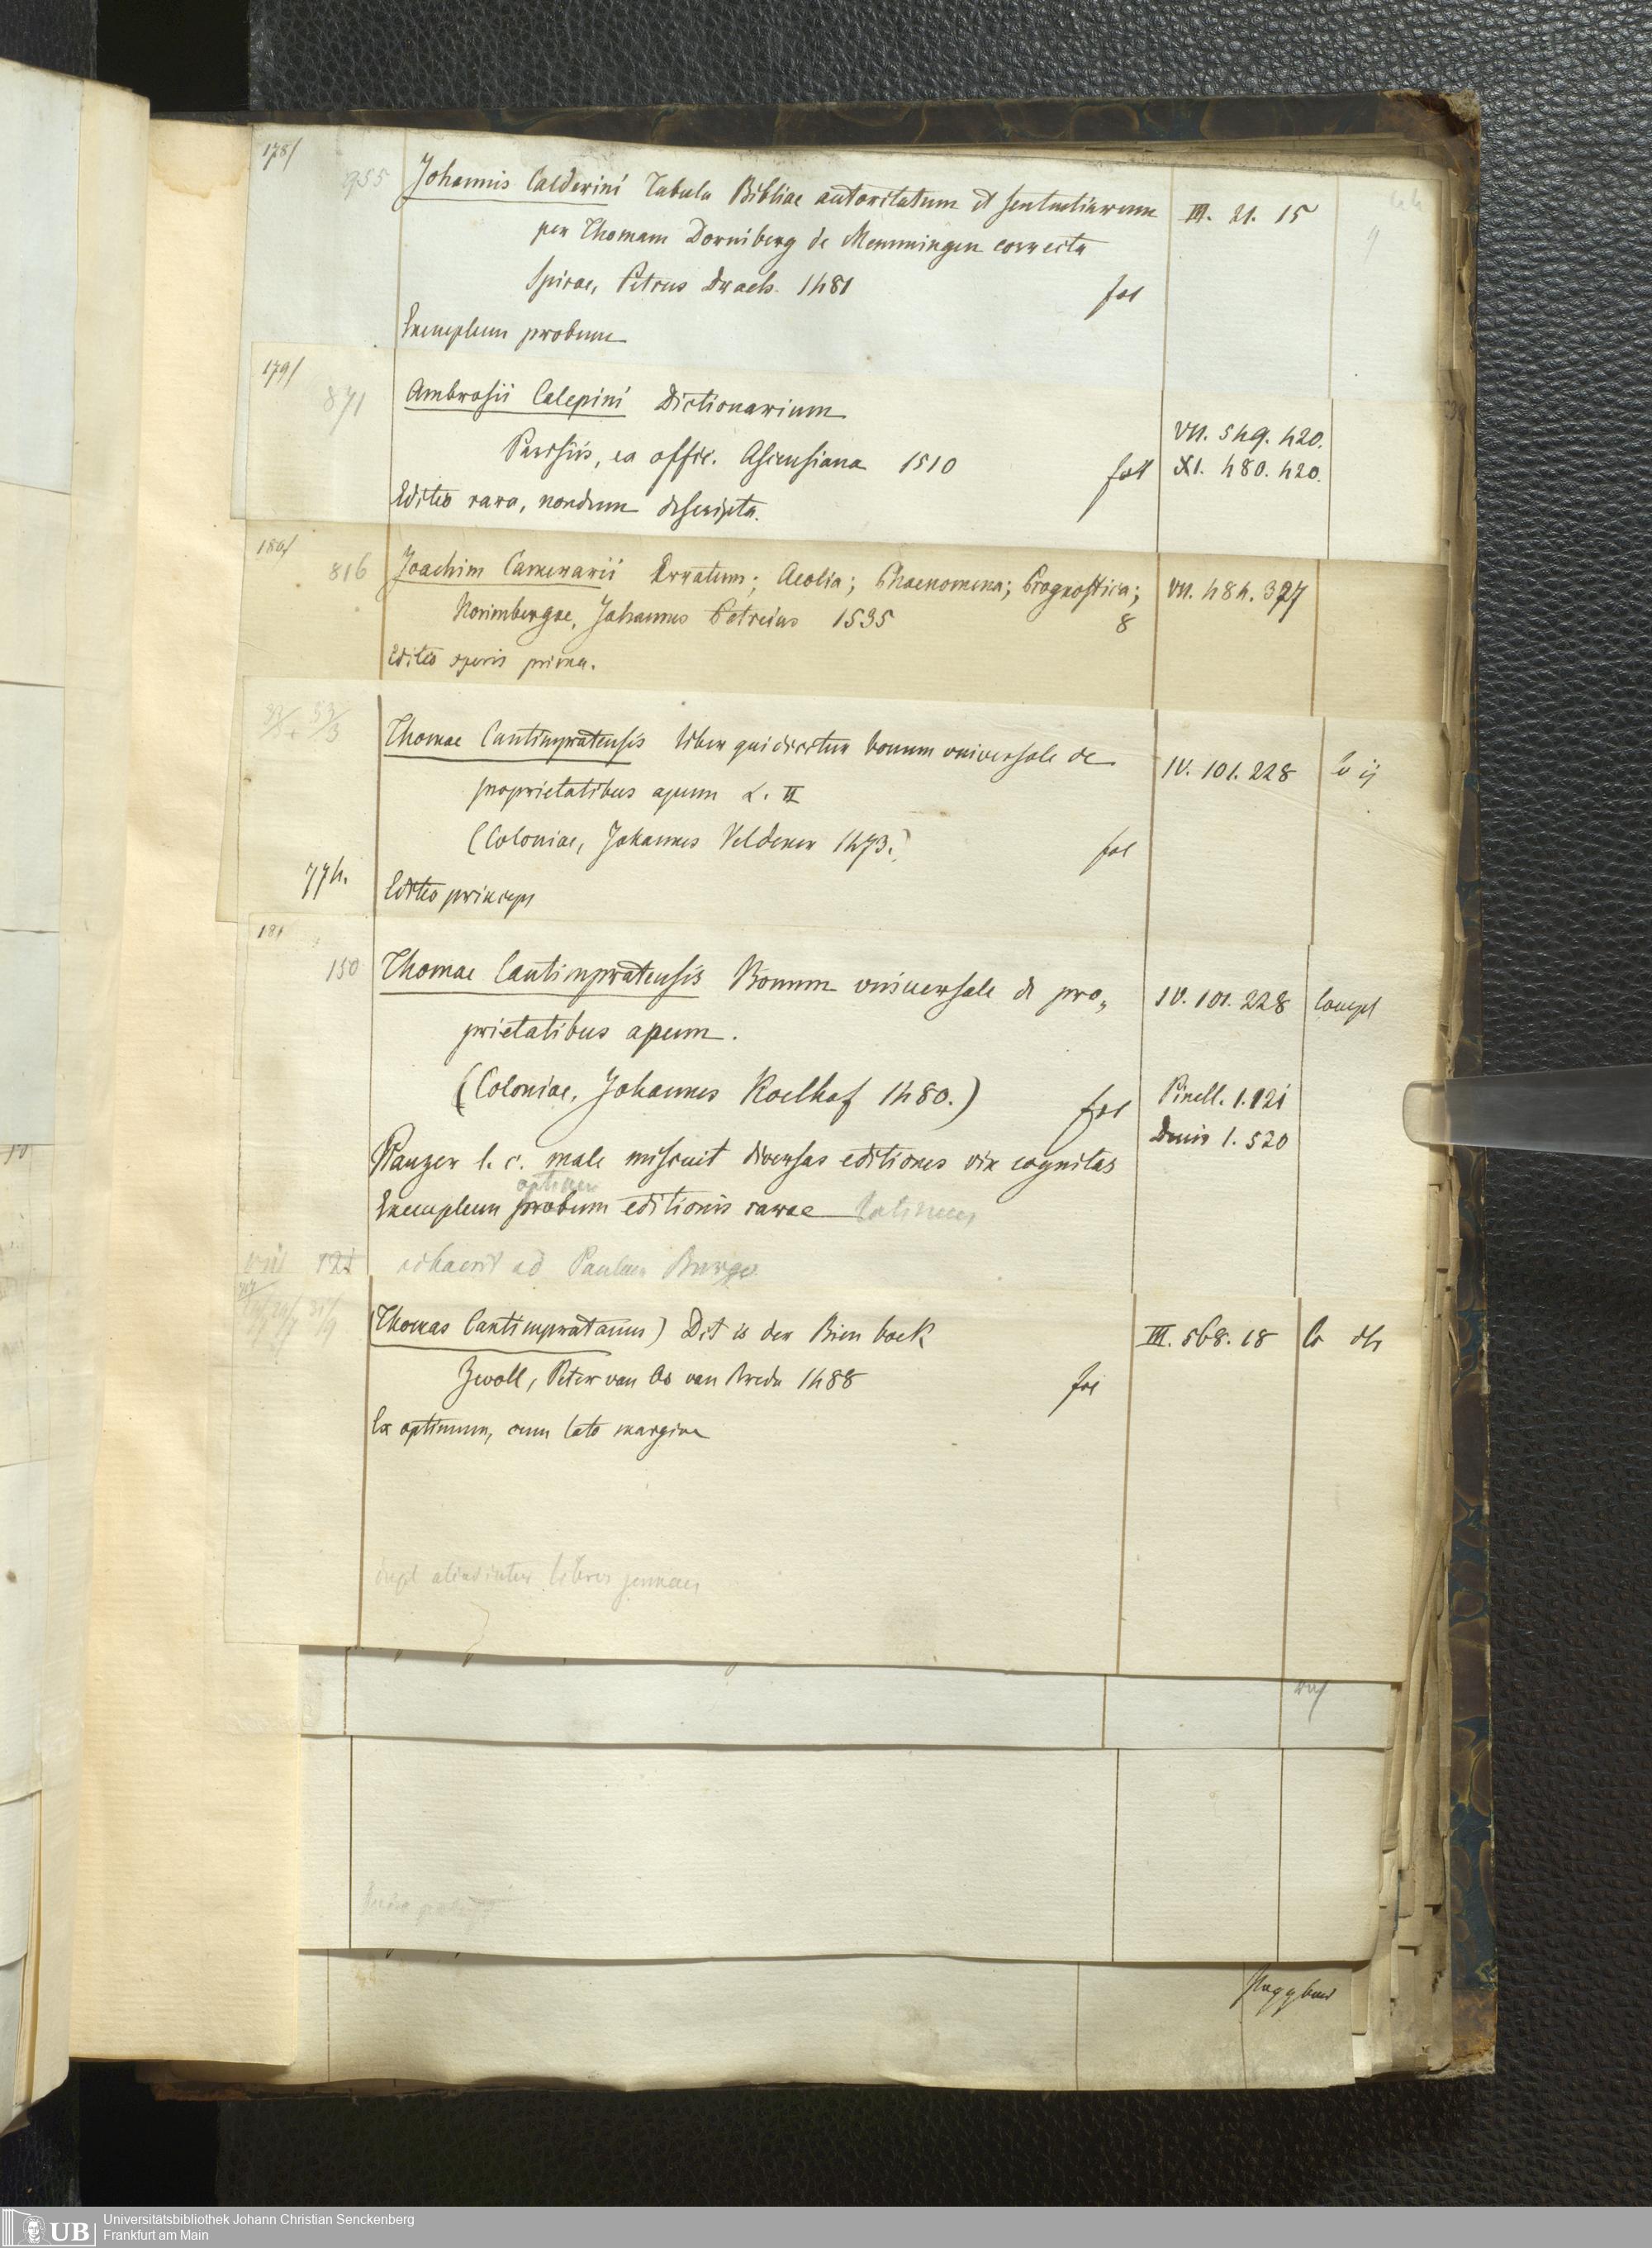 178/
955 Johannis Calderini Tabula Bibliae autoritatum et sententiarum III. 21. 15
per Thomam Dorniberg de Memmingen correcta
Spirae, Petrus Drach. 1481 fol
Exemplum probum
179/
871 Ambrosii Calepini Dictionarium
VII. 549. 420.
Parisiis, ex offic. Ascensiana 1510 fol XI. 480. 420.
Editio rara, nondum descripta.
180/
816 Joachim Camerarii Erratum; Aeolia; Phaenomena; Prognostica; VII. 484. 327
Norimbergae, Johannes Petreius 1535 8
Editio operis prima.
Thomae Cantimpratensis liber qui dicitur bonum universale de IV. 101. 228
proprietatibus apum L. II
(Coloniae, Johannes Veldener 1473.) fol
774. Editio princeps
181
150 Thomae Cantimpratensis Bonum universale de pro„ IV. 101. 228 Compl
prietatibus apum.
(Coloniae, Johannes Koelhof 1480.) fol Pinell. 1. 121
Denis 1. 520
Panzer l. c. male miscuit diversas editiones vix cognitas
optimum
Exemplum probum editionis rarae
121 adhaeret ad Paulum Burge
(Thomas Cantimpratanus) Dit is der Bien boek III. 568. 18
Zwoll, Peter van Os van Breda 1488 fol
Ex optimum, cum lato margine
Universitätsbibliothek Johann Christian Senckenberg
UB Frankfurt am Main